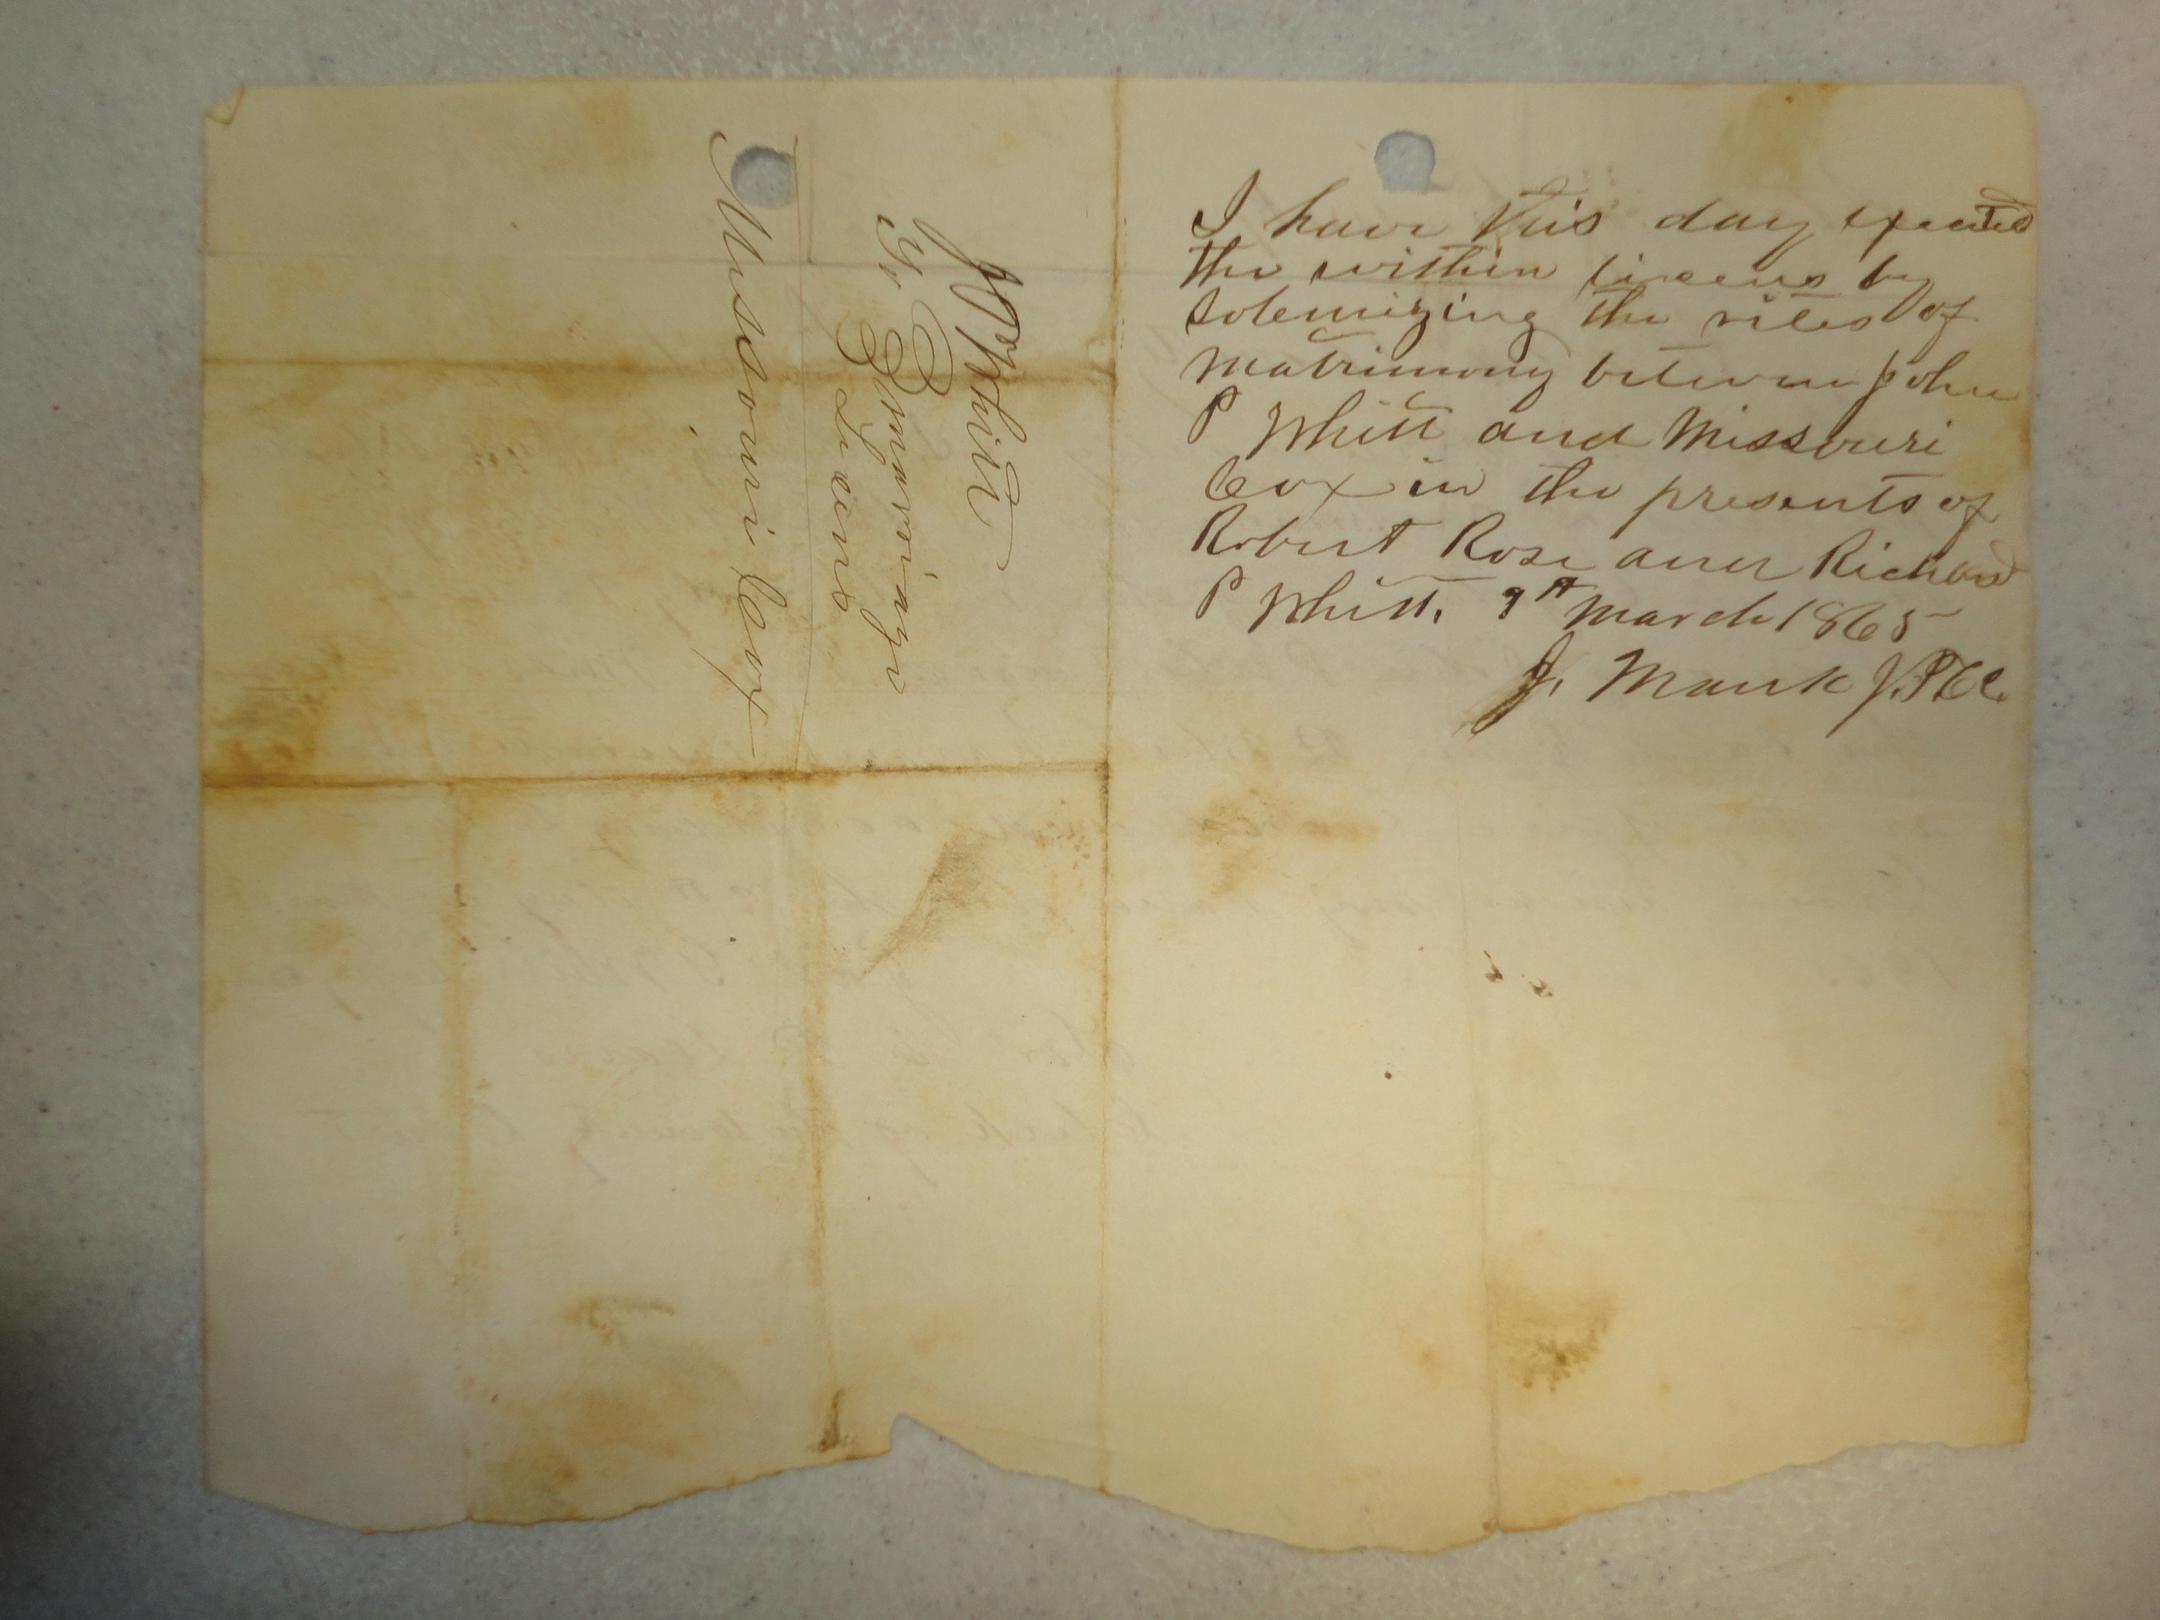 I have this day executed
the within licens by
solemizing the rites of
matrimony between John
P Whitt and Missouri
Cox in the presents of
Robert Rose and Richard
P Whitt. 9th March 1865
J. Mauk J.P.C.C.
J P Whitt
To Marriage
Licens
Missouri Cox